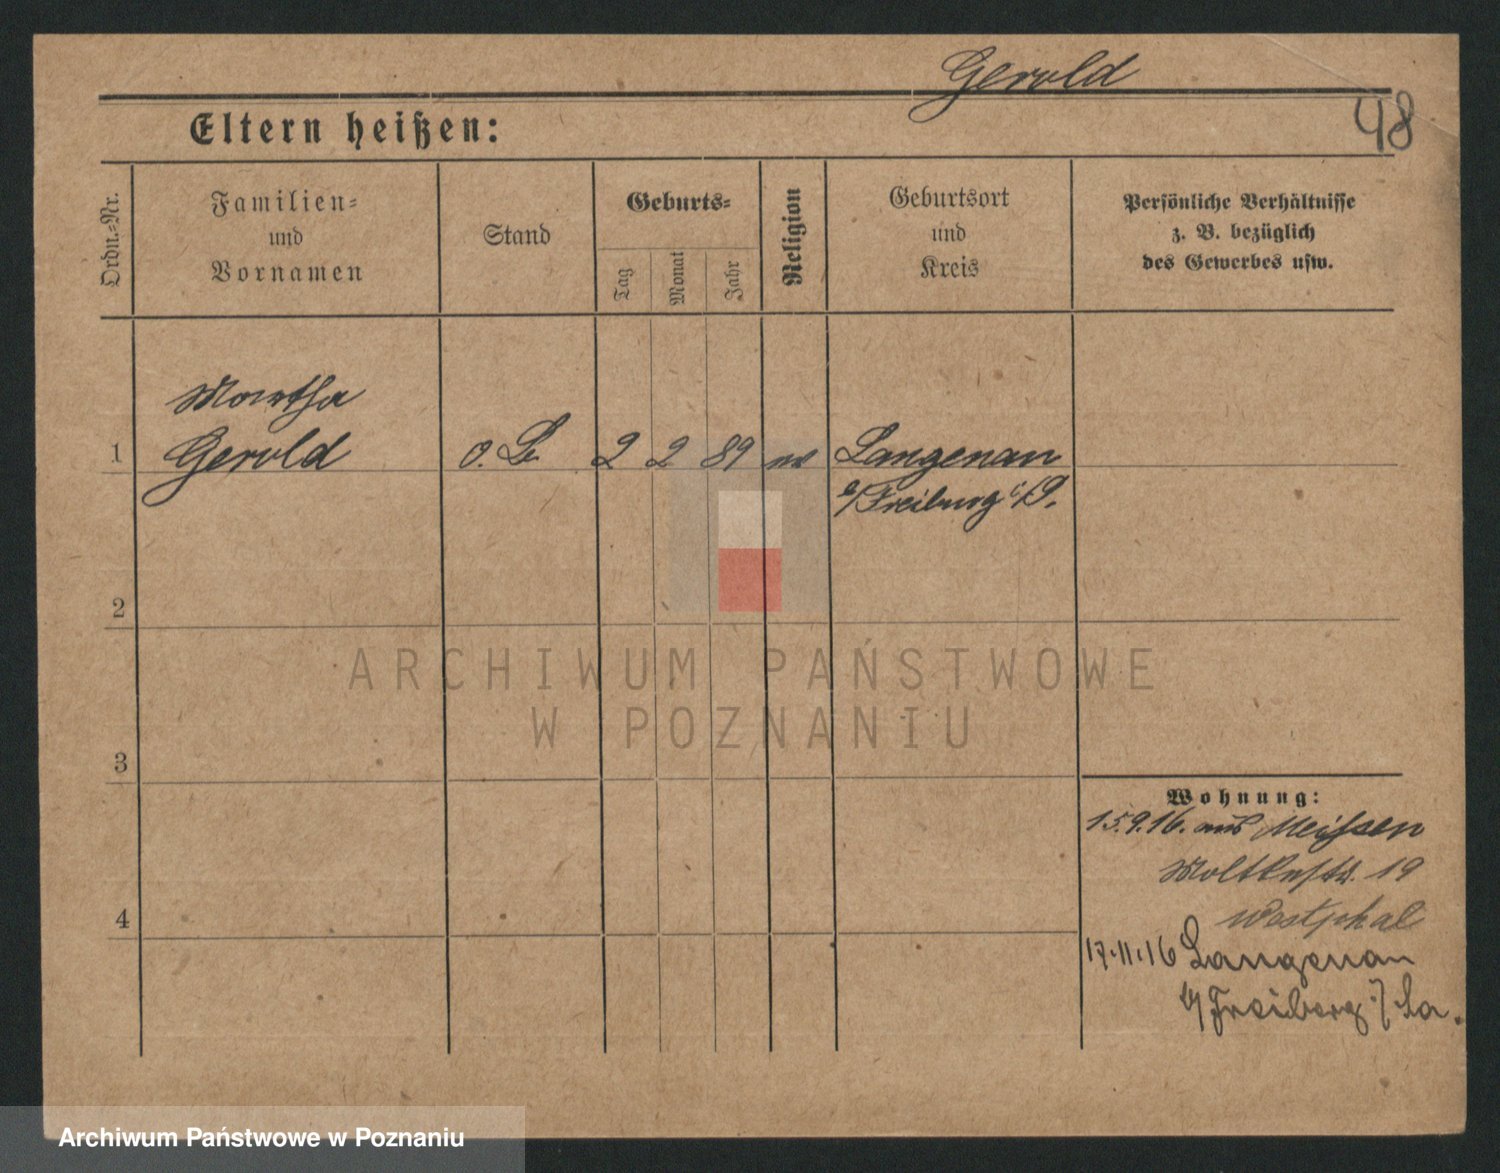 Gerold
48
Eltern heißen:
Ordn.-Nr.
Familien-
und
Vornamen
Stand
Geburts-
Tag
Monat
Jahr
Religion
Geburtsort
und
Kreis
Persönliche Verhältnisse
z. B. bezüglich
des Gewerbes usw.
Martha
1 Gerold o. B. 2 2 89 ev Langenau
b/Freiburg i/S.
2
3
4
Wohnung:
15.9.16. aus Meissen
Moltkestr. 19
Westphal
17.11.16 Langenau
b/Freiberg i/Sa.
ARCHIWUM PAŃSTWOWE
W POZNANIU
Archiwum Państwowe w Poznaniu